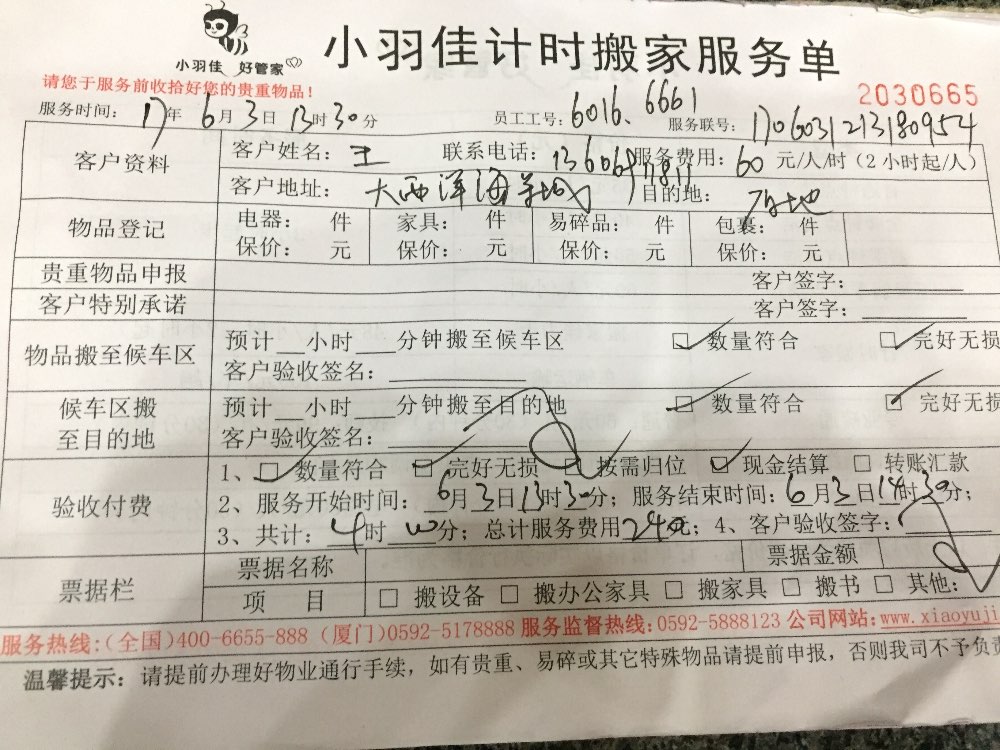 小羽佳 好管家
小羽佳计时搬家服务单
请您于服务前收拾好您的贵重物品！
2030665
服务时间： 17年 6月 3日 13时 30分 员工工号：6016、6661 服务联号：1706031213180954
客户资料 客户姓名：王 联系电话： 服务费用：60 元/人/时（2 小时起/人）
客户地址：大西洋海景城 目的地：在地
物品登记 电器： 件 家具： 件 易碎品： 件 包裹： 件
保价： 元 保价： 元 保价： 元 保价： 元
贵重物品申报 客户签字：
客户特别承诺 客户签字：
物品搬至候车区 预计 小时 分钟搬至候车区 数量符合 完好无损
客户验收签名：
候车区搬至目的地 预计 小时 分钟搬至目的地 数量符合 完好无损
客户验收签名：
验收付费 1、 数量符合 完好无损 按需归位 现金结算 转账汇款
2、服务开始时间：6月3日13时30分；服务结束时间：6月3日14时30分；
3、共计：4时00分；总计服务费用240元；4、客户验收签字：
票据栏 票据名称 票据金额
项 目 搬设备 搬办公家具 搬家具 搬书 其他：
服务热线：(全国)400-6655-888 (厦门)0592-5178888 服务监督热线：0592-5888123 公司网站：www.xiaoyuji
温馨提示：请提前办理好物业通行手续，如有贵重、易碎或其它特殊物品请提前申报，否则我司不予负责